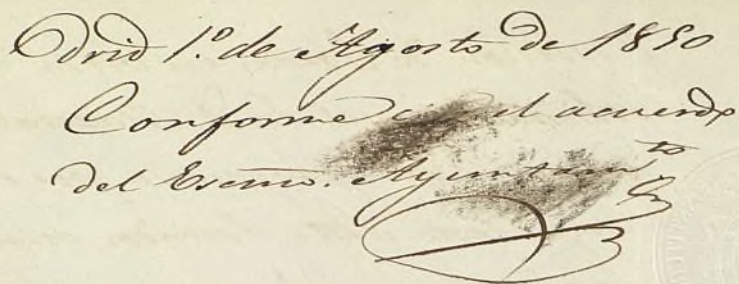 Mdrid 1.º de Agosto de 1850
Conforme con el acuerdo
del Escmo. Ayuntamto